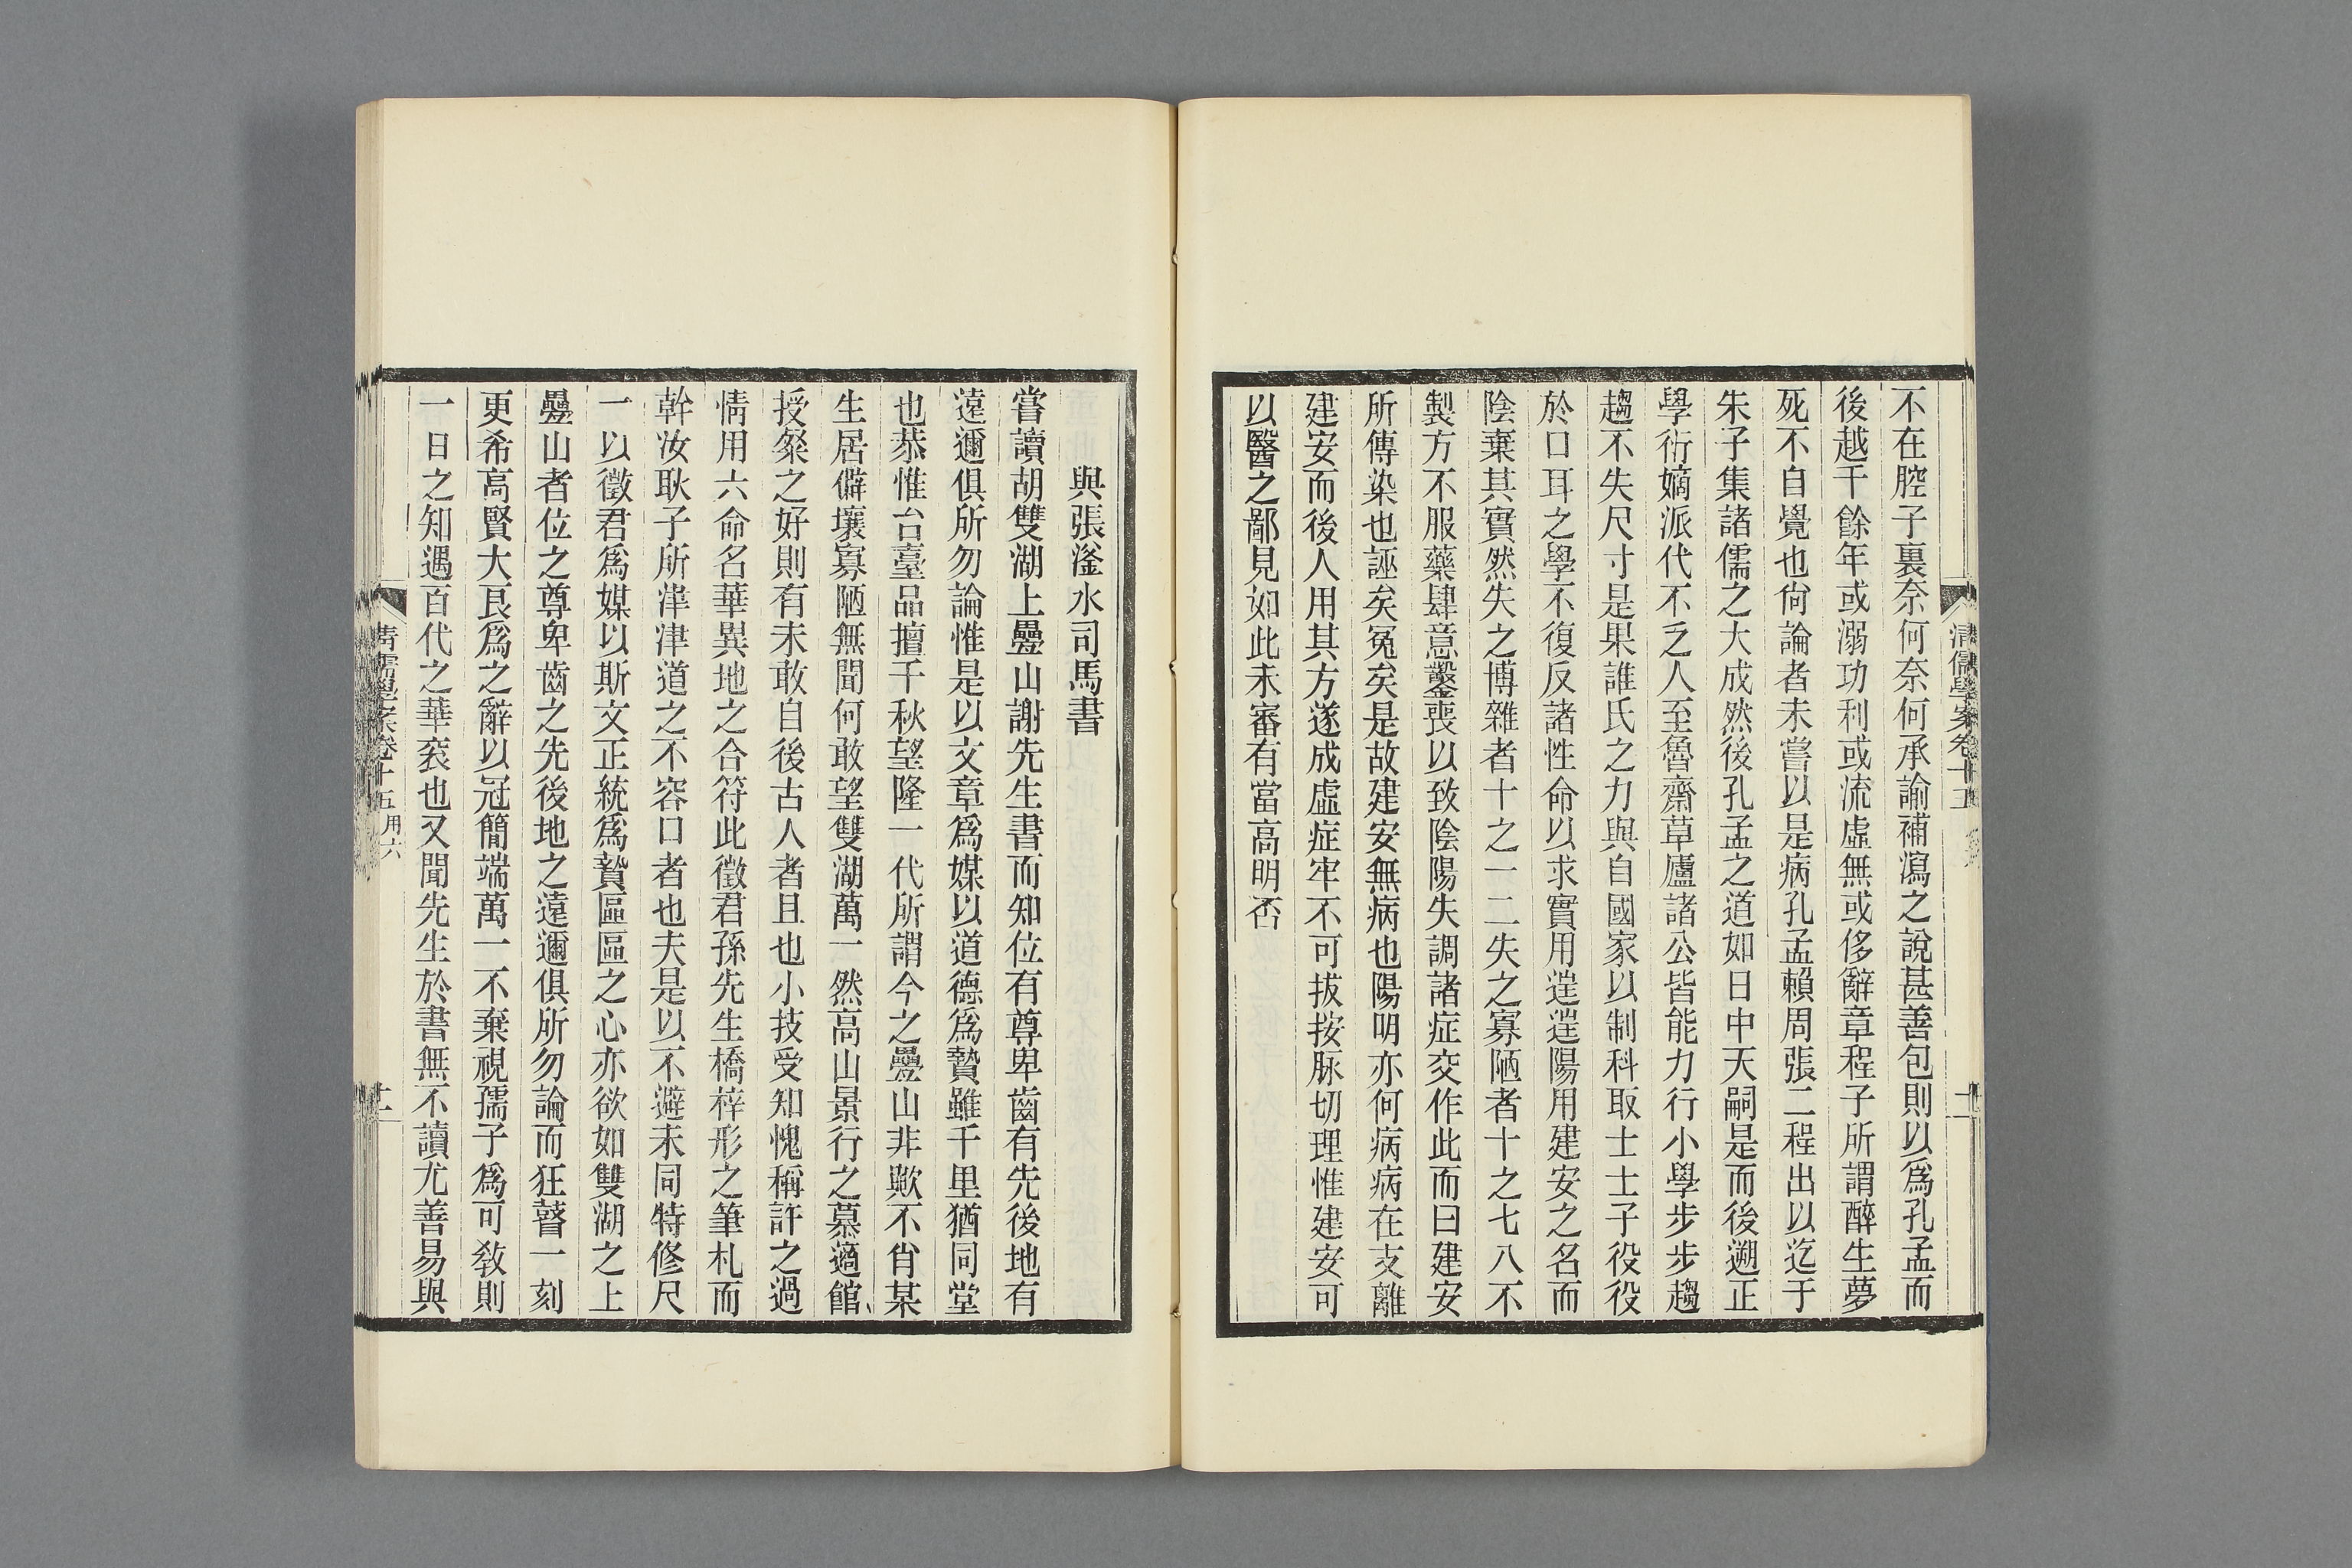 清儒學案卷十五
不在腔子裏奈何奈何承諭補瀉之說甚善包則以爲孔孟而
後越千餘年或溺功利或流虛無或侈辭章程子所謂醉生夢
死不自覺也尙論者未嘗以是病孔孟賴周張二程出以迄于
朱子集諸儒之大成然後孔孟之道如日中天嗣是而後遡正
學術嫡派代不乏人至魯齋草廬諸公皆能力行小學步步趨
趨不失尺寸是果誰氏之力與自國家以制科取士士子役役
於口耳之學不復反諸性命以求實用逞逞陽用建安之名而
陰棄其實然失之博雜者十之一二失之寡陋者十之七八不
製方不服藥肆意鑿喪以致陰陽失調諸症交作此而曰建安
所傳染也誣矣冤矣是故建安無病也陽明亦何病病在支離
建安而後人用其方遂成虛症牢不可拔按脉切理惟建安可
以醫之鄙見如此未審有當高明否
與張滏水司馬書
嘗讀胡雙湖上疊山謝先生書而知位有尊卑齒有先後地有
遠邇俱所勿論惟是以文章爲媒以道德爲贄雖千里猶同堂
也恭惟台臺品擅千秋望隆一代所謂今之疊山非歟不肖某
生居僻壤寡陋無聞何敢望雙湖萬一然高山景行之慕適館
授粲之好則有未敢自後古人者且也小技受知愧稱許之過
情用六命名華異地之合符此徵君孫先生橋梓形之筆札而
幹汝耿子所津津道之不容口者也夫是以不避未同特修尺
一以徵君爲媒以斯文正統爲贄區區之心亦欲如雙湖之上
疊山者位之尊卑齒之先後地之遠邇俱所勿論而狂瞽一刻
更希高賢大良爲之辭以冠簡端萬一不棄視孺子爲可教則
一日之知遇百代之華衮也又聞先生於書無不讀尤善易與
清儒學案卷十五 用六